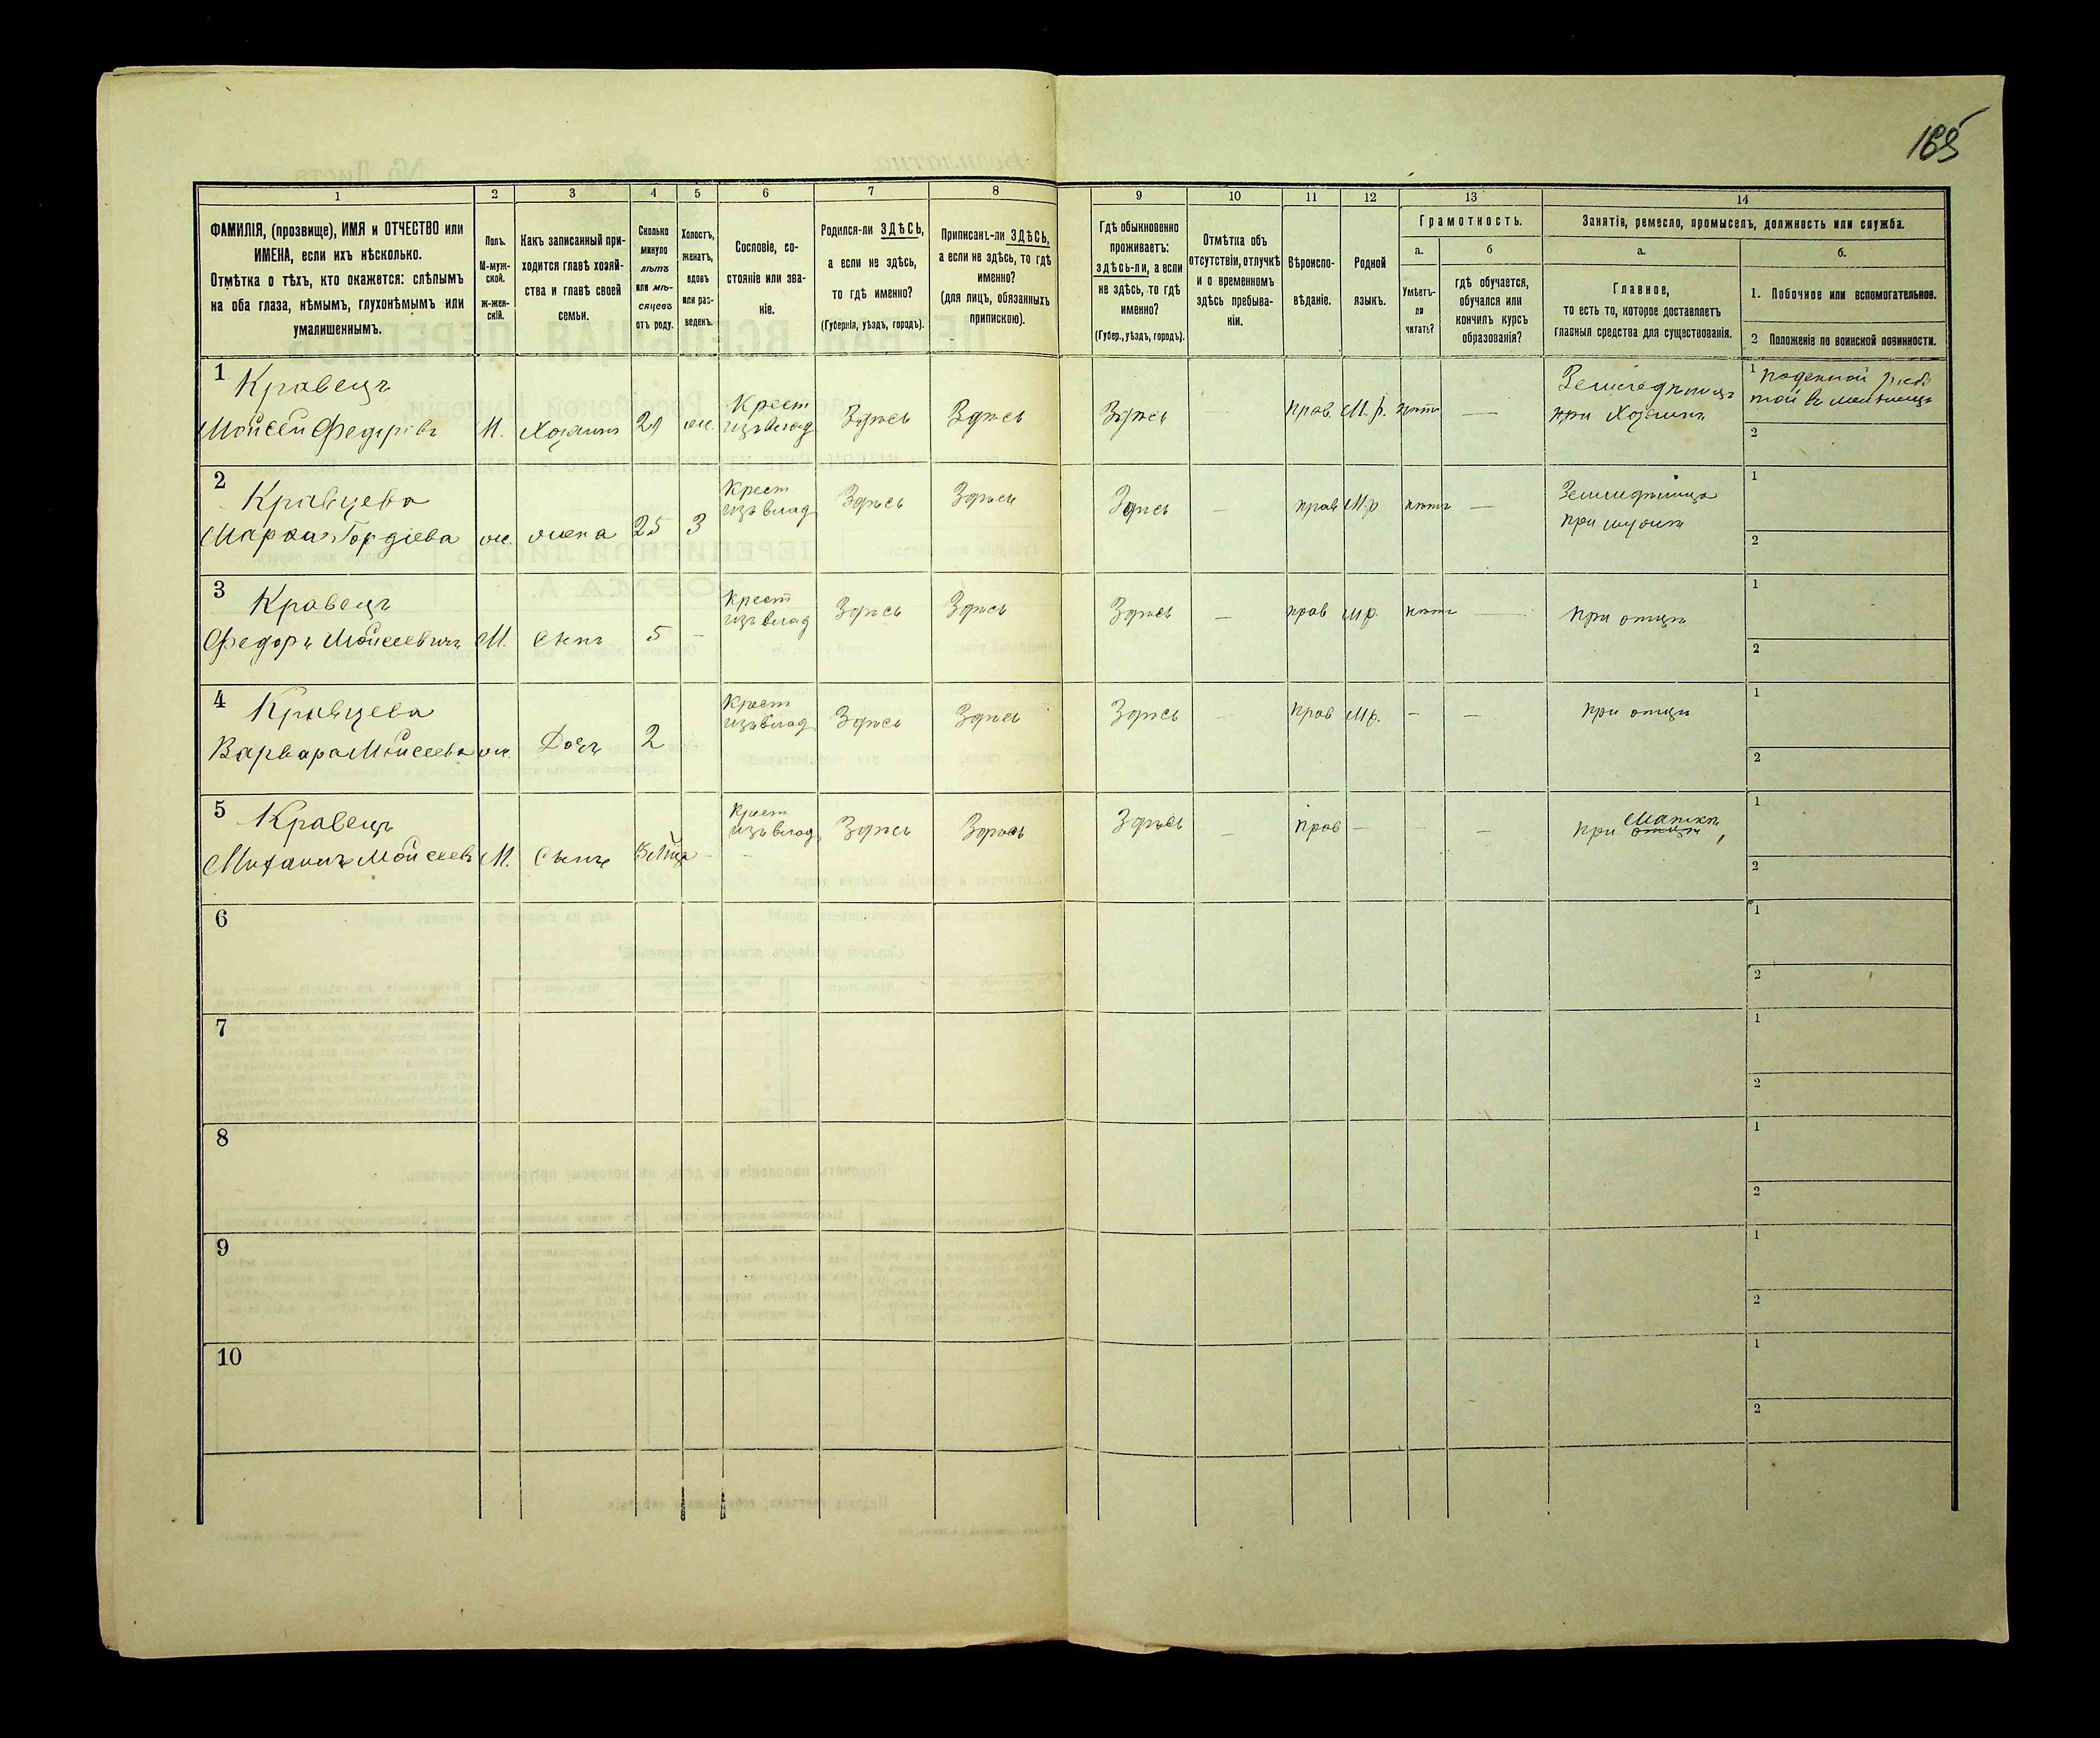 165
1 2 3 4 5 6 7 8 9 10 11 12 13 14
ФАМИЛІЯ, (прозвище), ИМЯ и ОТЧЕСТВО или
ИМЕНА, если ихъ нѣсколько.
Отмѣтка о тѣхъ, кто окажется: слѣпымъ
на оба глаза, нѣмымъ, глухонѣмымъ или
умалишеннымъ.
Полъ.
М-муж-
ской.
ж-жен-
скій.
Какъ записанный при-
ходится главѣ хозяй-
ства и главѣ своей
семьи.
Сколько
минуло
лѣтъ
или мѣ-
сяцевъ
отъ роду.
Холостъ,
женатъ,
вдовъ
или раз-
веденъ.
Сословіе, со-
стояніе или зва-
ніе.
Родился-ли ЗДѢСЬ,
а если не здѣсь,
то гдѣ именно?
(Губернія, уѣздъ, городъ).
Приписанъ-ли ЗДѢСЬ,
а если не здѣсь, то гдѣ
именно?
(для лицъ, обязанныхъ
припискою).
Гдѣ обыкновенно
проживаетъ:
здѣсь-ли, а если
не здѣсь, то гдѣ
именно?
(Губер., уѣздъ, городъ).
Отмѣтка объ
отсутствіи, отлучкѣ
и о временномъ
здѣсь пребыва-
ніи.
Вѣроиспо-
вѣданіе.
Родной
языкъ.
Грамотность.
а.
Умѣетъ-
ли
читать?
б
гдѣ обучается,
обучался или
кончилъ курсъ
образованія?
Занятія, ремесло, промыселъ, должность или служба.
а.
Главное,
то есть то, которое доставляетъ
главныя средства для существованія.
б.
1. Побочное или вспомогательное.
2 Положеніе по воинской повинности.
1 Кравецъ
Мойсей Федоровъ М. Хозяинъ ж. Крест изъ влад Здѣсь Здѣсь Здѣсь — прав. М.р. нѣтъ —
при Хозяинъ
1 поденной
2
2 Кравцева
Гордіева ж. жена 25 З Крест изъ влад Здѣсь Здѣсь Здѣсь — прав М.р нѣтъ —
при мужѣ
1
2
3 Кравецъ
Федоръ Мойсеевичъ М. Сынъ 5 – Крест изъ влад Здѣсь Здѣсь Здѣсь — прав мр. нѣтъ — при отцѣ
1
2
4 Кравцева
Варвара Мойсеева ж. Дочь 2 Крест изъ влад Здѣсь Здѣсь Здѣсь – прав Мр. – – при отцѣ
1
2
5 Кравецъ
Михаилъ Мойсеевъ М. Сынъ – Крест изъ влад Здѣсь Здѣсь Здѣсь – прав – – – при отцѣ Маткѣ
1
2
6
1
2
7
1
2
8
1
2
9
1
2
10
1
2